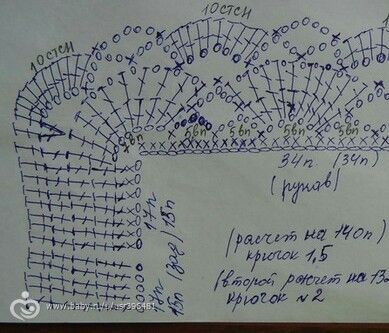 10СТСН
10СТСН
5вп 5вп 5вп 5вп 5вп
34п. (34п)
(рукав)
17п
18п (зад) 18п
(расчет на 140п)
крючок 1,5
(второй расчет на 13
крючок №2
www.baby.ru/u/usr396481